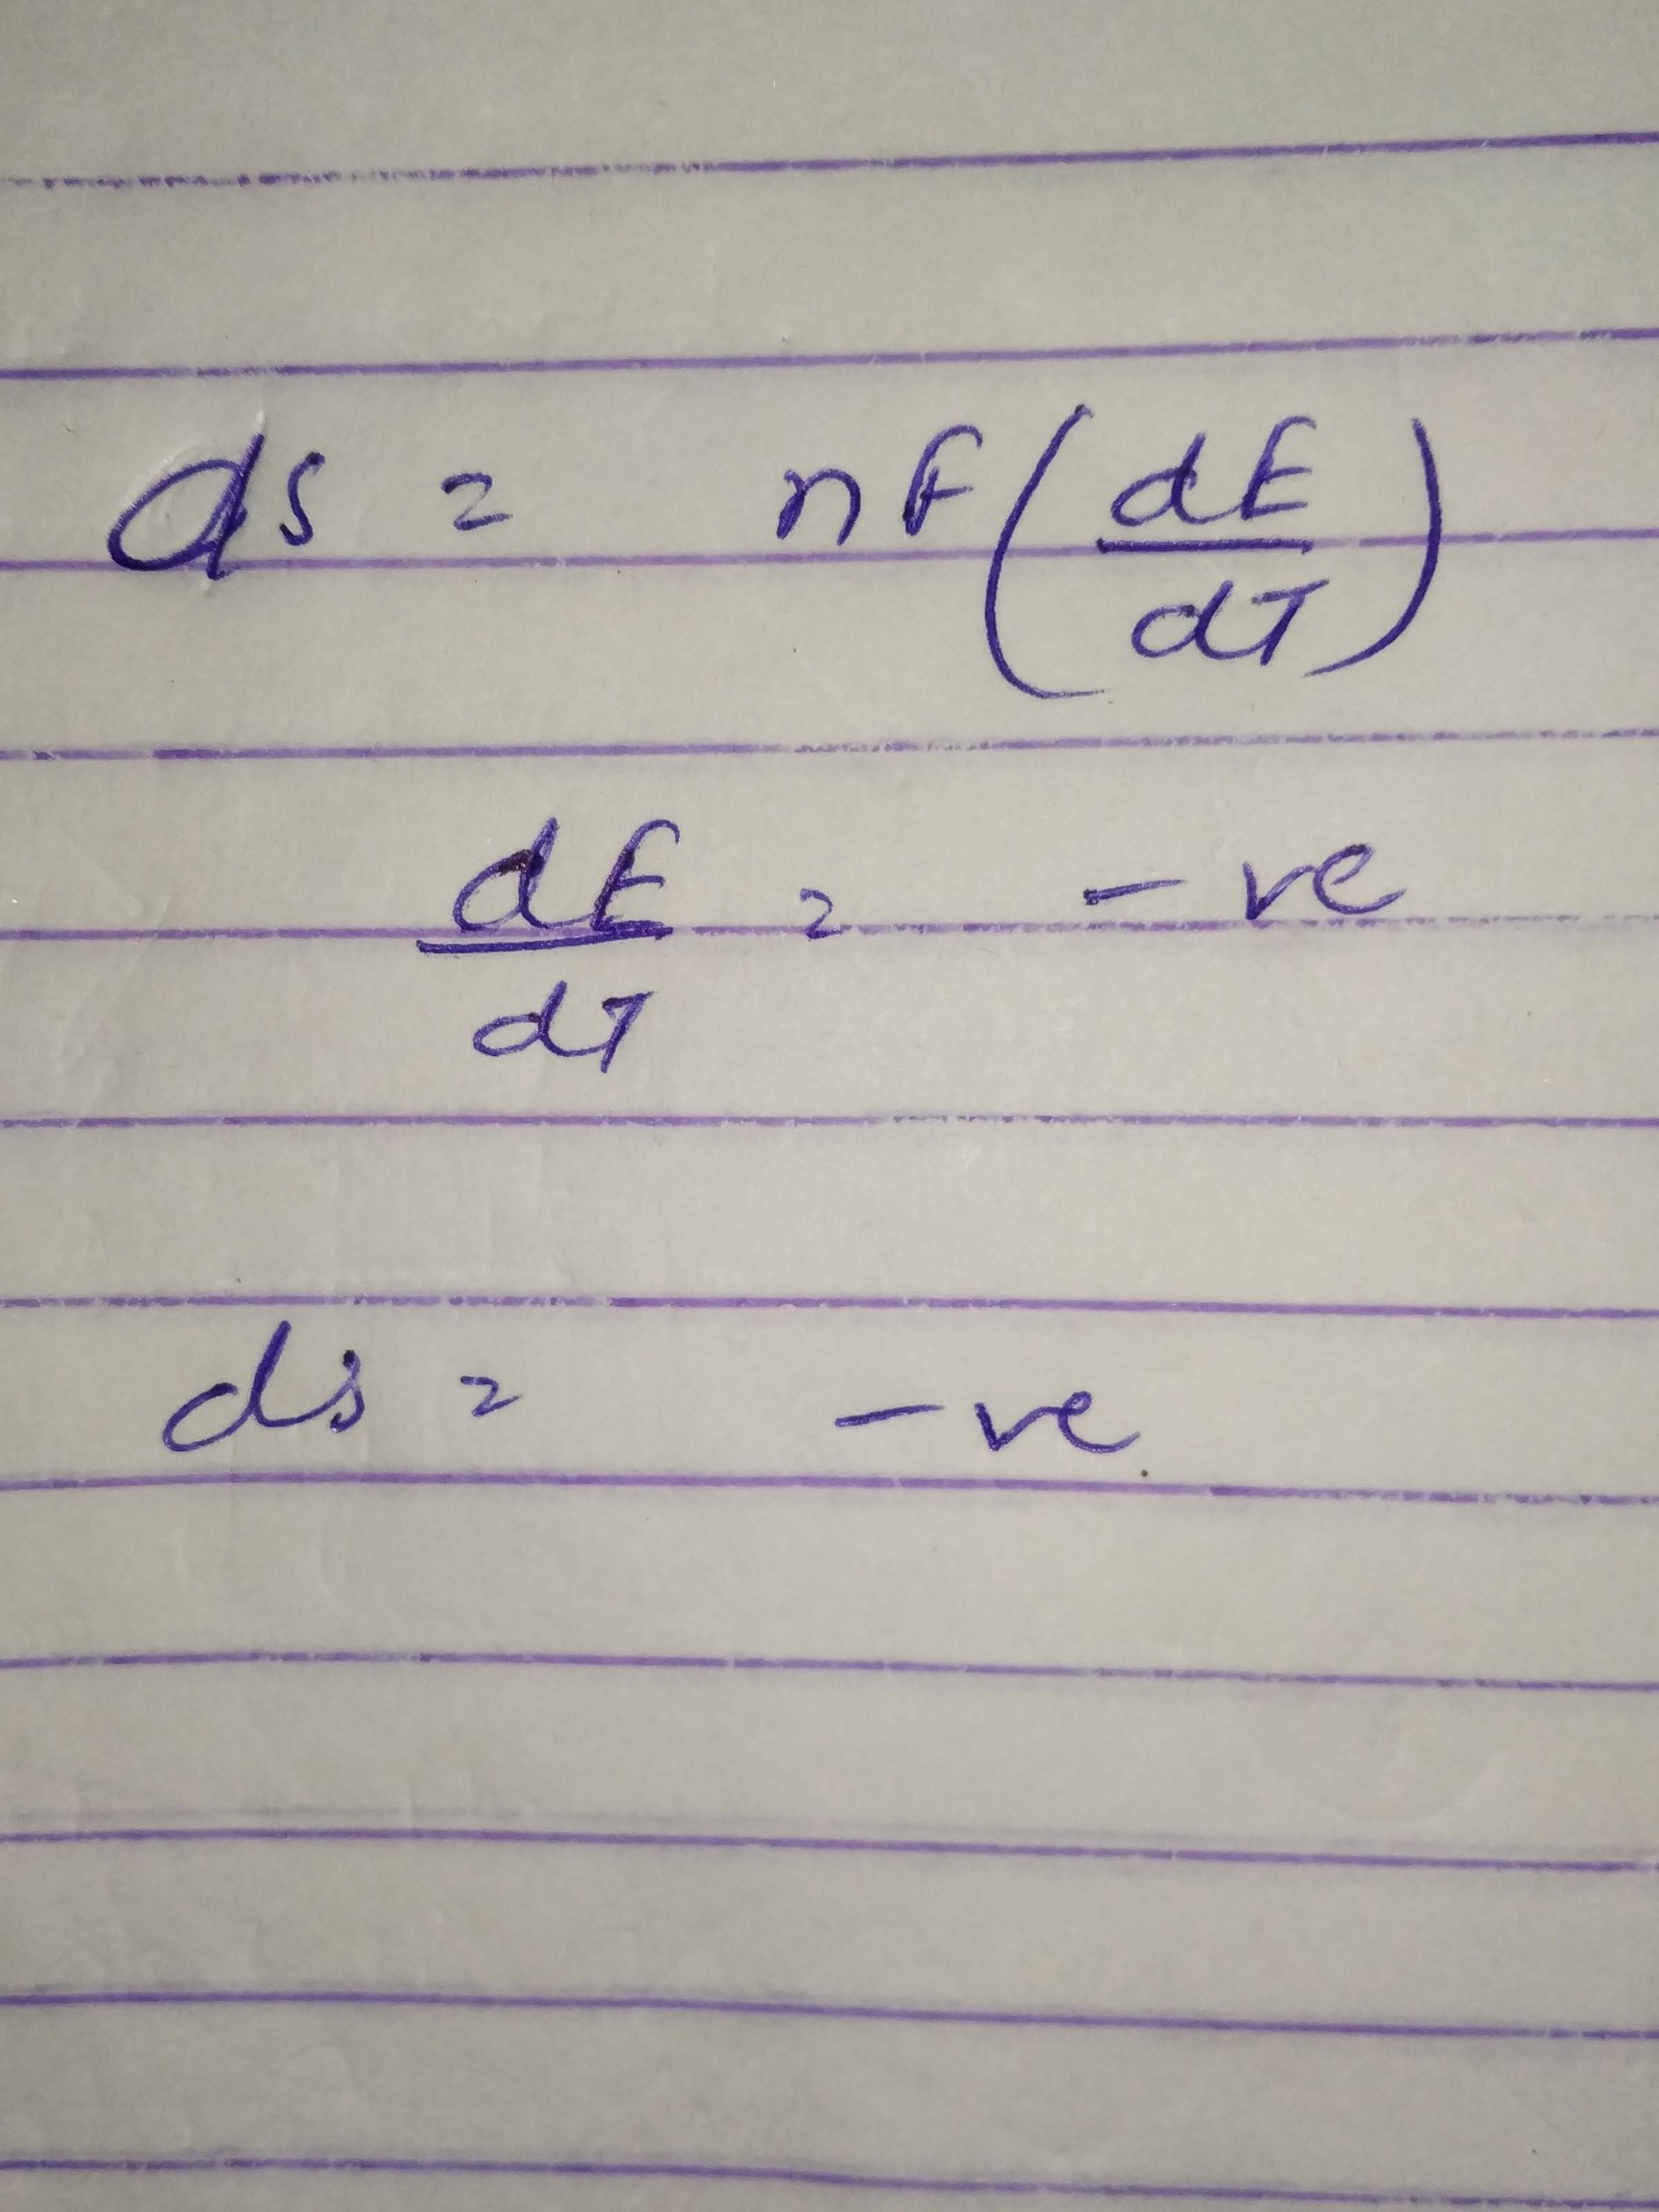 ds = nF(dE/dT)
dE/dT = -ve
ds = -ve